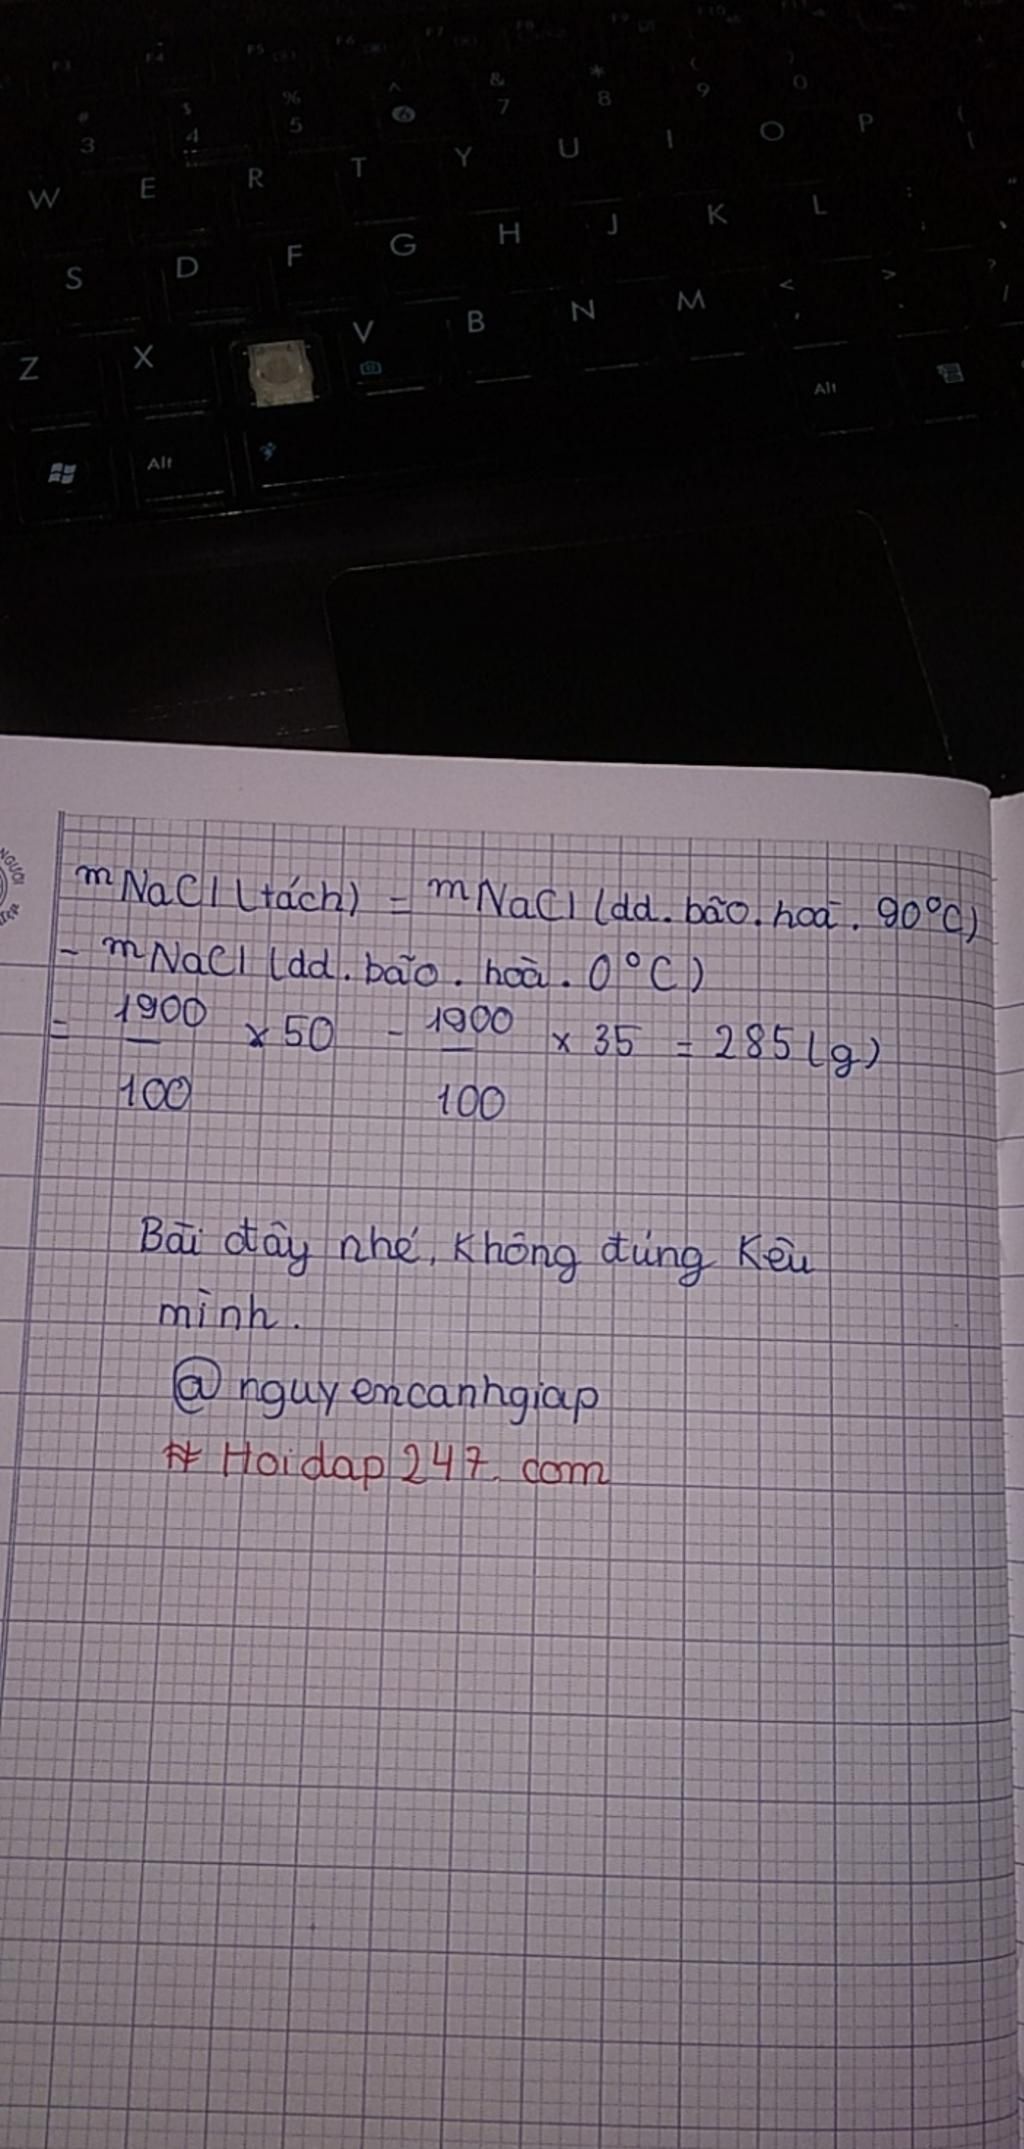 F3 F4 F5 F6 F7 F8 F9 F10
# $ % ^ & * ( )
3 4 5 6 7 8 9 0
W E R T Y U I O P
S D F G H J K L
Z X V B N M < , > . ? /
Alt Alt
NGƯỜI
mNaCl (tách) = mNaCl (dd. bão. hoà. 90°C)
- mNaCl (dd. bão. hoà. 0°C)
= 1900/100 x 50 - 1900/100 x 35 = 285 (g)
Bài đây nhé, không đúng kêu
mình.
@nguyencanhgiap
# Hoidap247.com